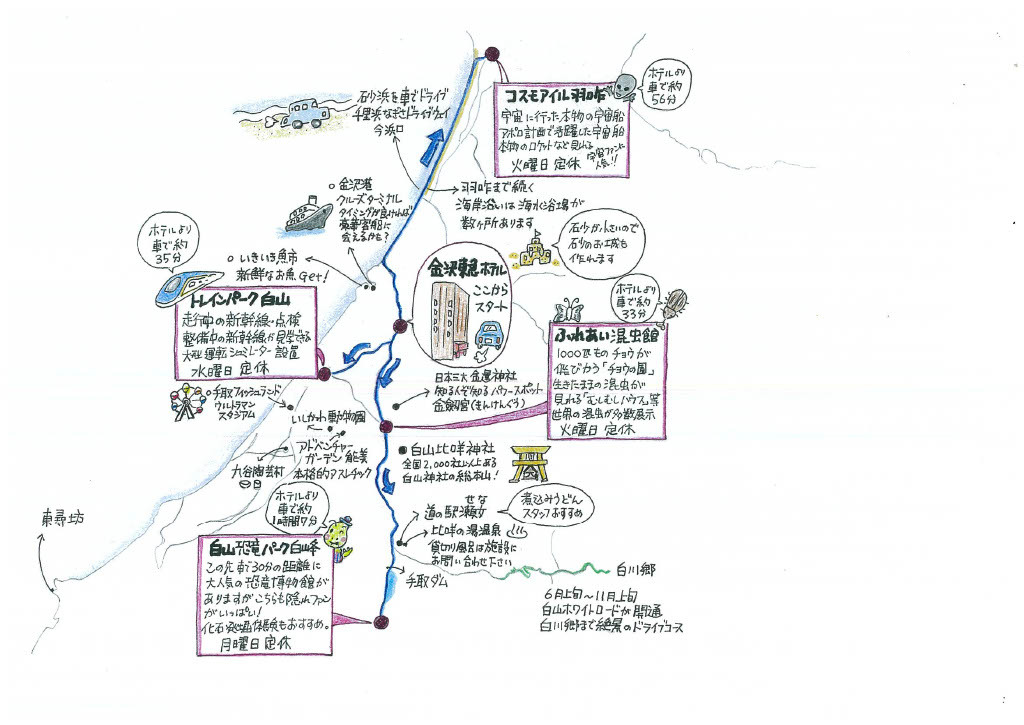 コスモアイル羽咋
宇宙に行った本物の宇宙船
アポロ計画で活躍した宇宙船
本物のロケットなど見れる
宇宙ファンに
人気!!
火曜日 定休
ホテルより
車で約
56分
砂浜を車でドライブ
千里浜なぎさドライブウェイ
今浜口
羽咋まで続く
海岸沿いは海水浴場が
数ヶ所あります
石少が小さいので
石少のお城も
作れます
金沢港
クルーズターミナル
タイミングが良ければ
豪華客船に
会えるかも?
いきいき魚市
新鮮なお魚Get!
金沢東急ホテル
ここから
スタート
ホテルより
車で約
35分
トレインパーク白山
走行中の新幹線・点検
整備中の新幹線が見学できる
大型運転シミュレーター設置
水曜日 定休
ホテルより
車で約
33分
ふれあい昆虫館
1000匹ものチョウが
飛びかう「チョウの園」
生きたままの昆虫が
見れる「むしむしハウス」等
世界の昆虫が多数展示
火曜日 定休
日本三大金運神社
知る人ぞ知るパワースポット
金劔宮(きんけんぐう)
手取フィッシュランド
ウルトラマン
スタジアム
いしかわ動物園
アドベンチャー
ガーデン能美
本格的アスレチック
九谷陶芸村
白山比咩神社
全国2,000社以上ある
白山神社の総本山!
せな
道の駅瀬女
煮込みうどん
スタッフおすすめ
比咩の湯温泉
貸切り風呂は施設に
お問い合わせ下さい
手取ダム
白川郷
6月上旬〜11月上旬
白山ホワイトロードが開通
白川郷まで絶景のドライブコース
東尋坊
ホテルより
車で約
1時間7分
白山恐竜パーク白峰
この先車で30分の距離に
大人気の恐竜博物館が
ありますがこちらも隠れファン
がいっぱい!
化石発掘体験もおすすめ。
月曜日 定休